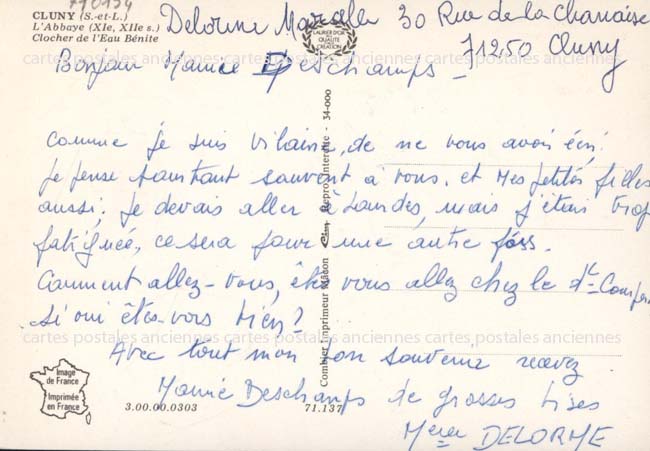 710134
CLUNY (S.-et-L.)
L'Abbaye (XIe, XIIe s.)
Clocher de l'Eau Bénite
LAURIER D'OR
DE LA
QUALITÉ
CRÉATION
Delorme Marcelle 30 Rue de la Chanaise
71250 Cluny
Bonjour Mamie Deschamps -
comme je suis vilaine, de ne vous avoir écri.
Je pense pourtant souvent à vous. et Mes petites filles
aussi; je devais aller à Lourdes, mais j'étais trop
fatiguée, ce sera pour une autre fois.
Comment allez-vous, êtes vous allez chez le dr
Si oui êtes-vous bien?
Avec tout mon bon souvenir recevez
Mamie Deschamps de grosses bises
Mme DELORME
Combier Imprimeur Mâcon Cim Repro. Interdite - 34-000
Image
de France
Imprimée
en France
3.00.00.0303
71.137
cartes postales anciennes cartes postales anciennes